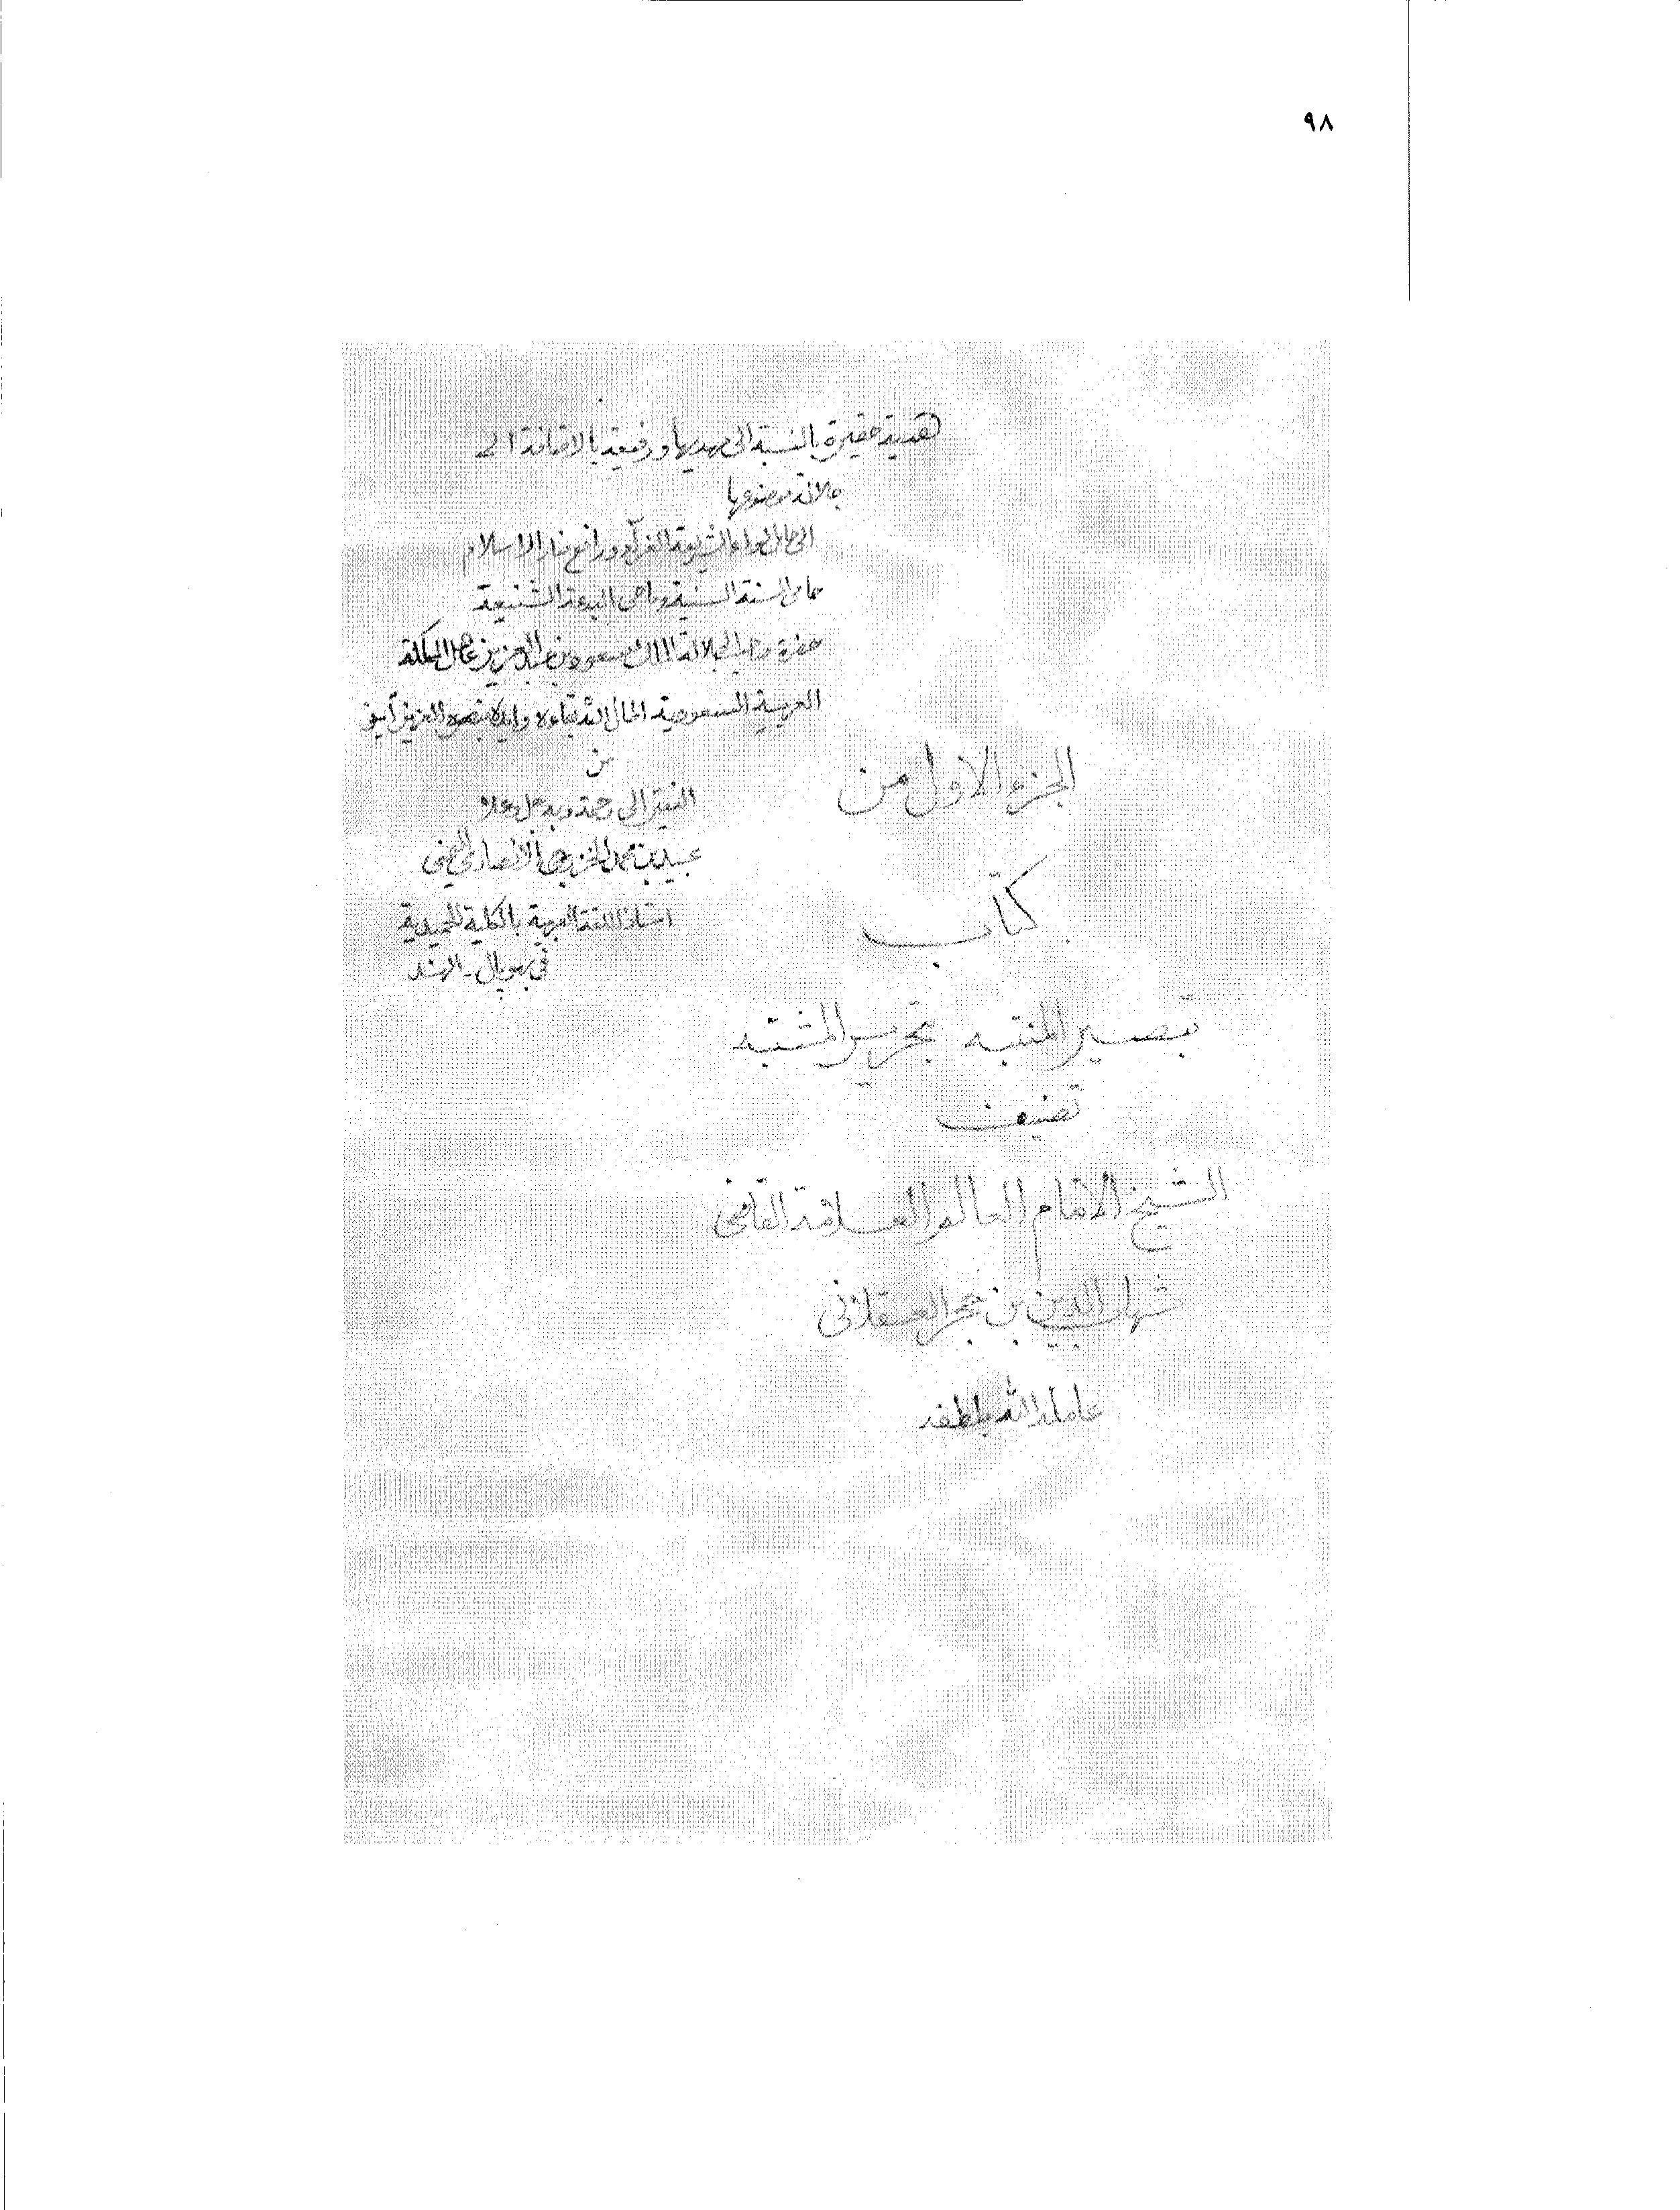 ٩٨
هدية حقيرة بالنسبة الى مهديها ورفيعة بالاضافة الى
جلالة موضوعها
الى حامل لواء الشريعة الغراء ورافع منار الاسلام
حامى السنة السنية وماحى البدعة الشنيعة
حضرة صاحب الجلالة الملك سعود بن عبد العزيز عاهل المملكة
العربية السعودية اطال الله بقاءه وايده بنصره العزيز آمين
من
الفقير الى رحمة ربه جل وعلا
عبيد بن محمد الخزرجى الأنصارى اليمنى
استاذ اللغة العربية بالكلية الحميدية
فى بهوپال - الهند
الجزء الاول من
كتاب
تبصير المنتبه بتحرير المشتبه
تصنيف
الشيخ الامام العالم العلامة القاضى
شهاب الدين بن حجر العسقلانى
عامله الله بلطفه